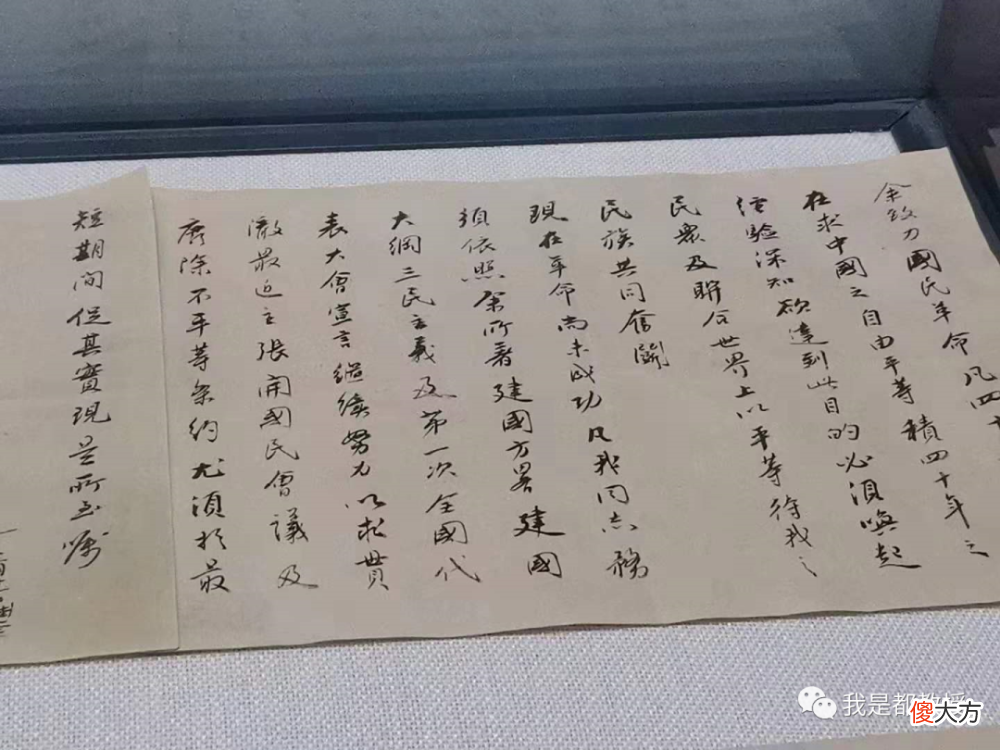 余致力國民革命凡四十
在求中國之自由平等積四十年之
經驗深知欲達到此目的必須喚起
民眾及聯合世界上以平等待我之
民族共同奮鬪
現在革命尚未成功凡我同志務
須依照余所著建國方畧建國
大綱三民主義及第一次全國代
表大會宣言繼續努力以求貫
澈最近主張開國民會議及
廢除不平等条約尤須於最
短期間促其實現是所至嘱
我是都教授
傻大方